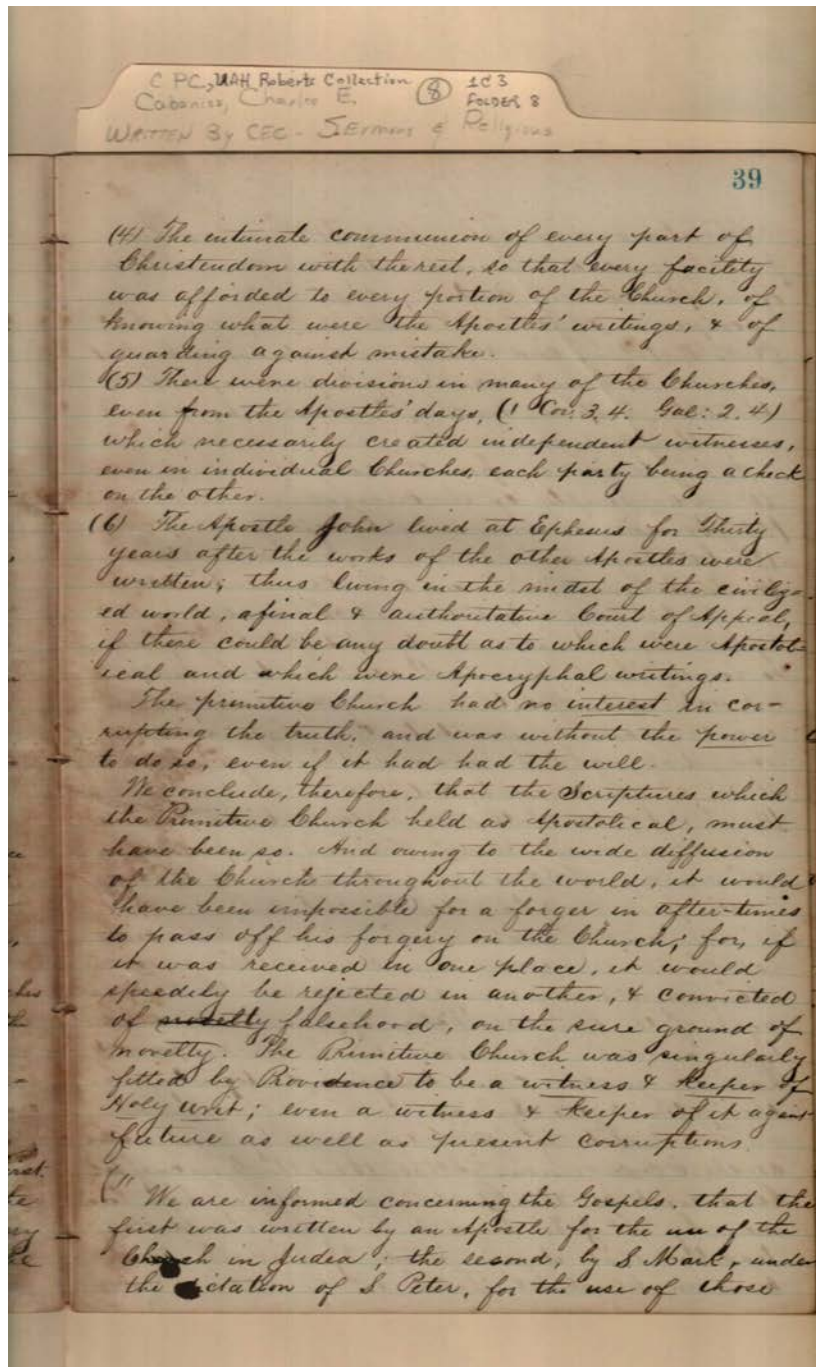 C PC, UAH Roberts Collection 8 1C3
Cabaniss, Charles E. FOLDER 8
WRITTEN By CEC - Sermons & Religious
39
(4) The intimate communion of every part of
Christendom with the rest, so that every facility
was afforded to every portion of the Church, of
knowing what were the Apostles' writings, & of
guarding against mistake.
(5) There were divisions in many of the Churches,
even from the Apostles' days, (1 Cor. 3. 4. Gal: 2. 4)
which necessarily created independent witnesses,
even in individual Churches, each party being a check
on the other.
(6) The Apostle John lived at Ephesus for Thirty
years after the works of the other Apostles were
written; thus living in the midst of the civiliz-
ed world, a final & authoritative Court of Appeal,
if there could be any doubt as to which were Apostol-
ical and which were Apocryphal writings.
The primitive Church had no interest in cor-
rupting the truth, and was without the power
to do so, even if it had had the will.
We conclude, therefore, that the Scriptures which
the Primitive Church held as Apostolical, must
have been so. And owing to the wide diffusion
of the Church throughout the world, it would
have been impossible for a forger in after-times
to pass off his forgery on the Church; for, if
it was received in one place, it would
speedily be rejected in another, & convicted
of novelty falsehood, on the sure ground of
novelty. The Primitive Church was singularly
fitted by Providence to be a witness & keeper of
Holy writ; even a witness & keeper of it against
future as well as present corruptions.
We are informed concerning the Gospels, that the
first was written by an Apostle for the use of the
Church in Judea; the second, by S Mark, under
the dictation of S Peter, for the use of those